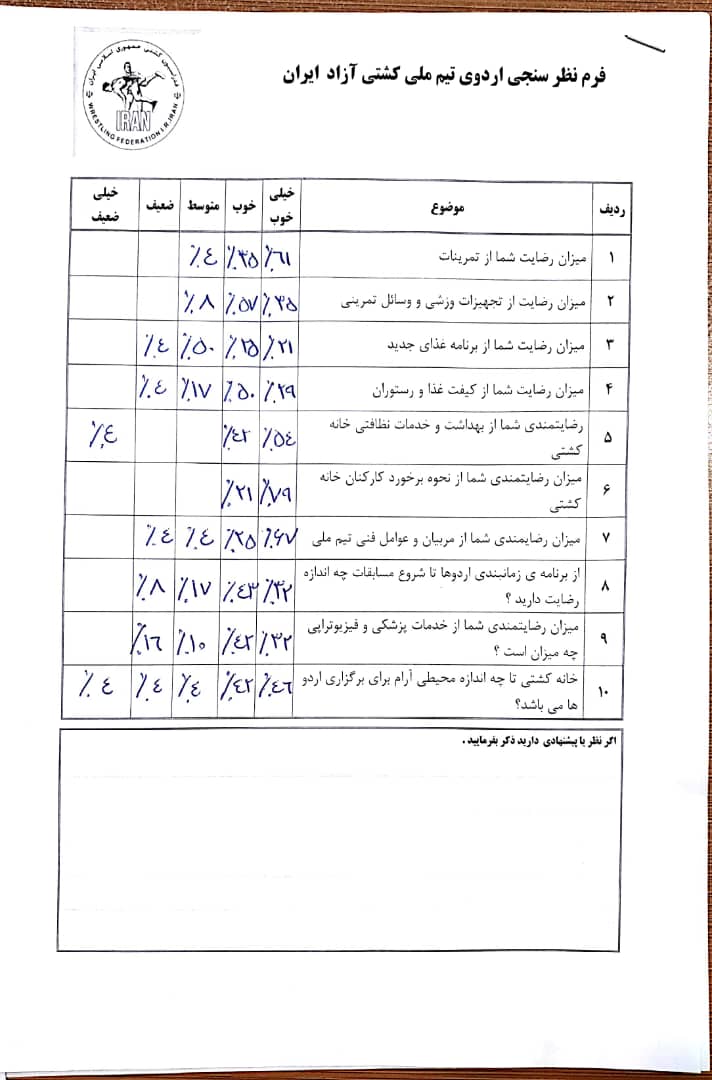 فرم نظر سنجی اردوی تیم ملی کشتی آزاد ایران
فدراسیون کشتی جمهوری اسلامی ایران
IRAN
WRESTLING FEDERATION I.R.IRAN
ردیف موضوع خیلی خوب خوب متوسط ضعیف خیلی ضعیف
۱ میزان رضایت شما از تمرینات ٪۶۱ ٪۳۵ ٪٤
۲ میزان رضایت از تجهیزات وزشی و وسائل تمرینی ٪۳۵ ٪۵۷ ٪۸
۳ میزان رضایت شما از برنامه غذای جدید ٪۲۱ ٪۲۵ ٪۵۰ ٪٤
۴ میزان رضایت شما از کیفت غذا و رستوران ٪۲۹ ٪۵۰ ٪۱۷ ٪٤
۵ رضایتمندی شما از بهداشت و خدمات نظافتی خانه
کشتی ٪۵٤ ٪٤۲ ٪٤
۶ میزان رضایتمندی شما از نحوه برخورد کارکنان خانه
کشتی ٪۷۹ ٪۲۱
۷ میزان رضایمندی شما از مربیان و عوامل فنی تیم ملی ٪۶۷ ٪۲۵ ٪٤ ٪٤
۸ از برنامه ی زمانبندی اردوها تا شروع مسابقات چه اندازه
رضایت دارید ؟ ٪۳۲ ٪٤۳ ٪۱۷ ٪۸
۹ میزان رضایتمندی شما از خدمات پزشکی و فیزیوتراپی
چه میزان است ؟ ٪۳۲ ٪٤۲ ٪۱۰ ٪۱۶
۱۰ خانه کشتی تا چه اندازه محیطی آرام برای برگزاری اردو
ها می باشد؟ ٪٤۶ ٪٤۲ ٪٤ ٪٤ ٪٤
اگر نظر یا پیشنهادی دارید ذکر بفرمایید .